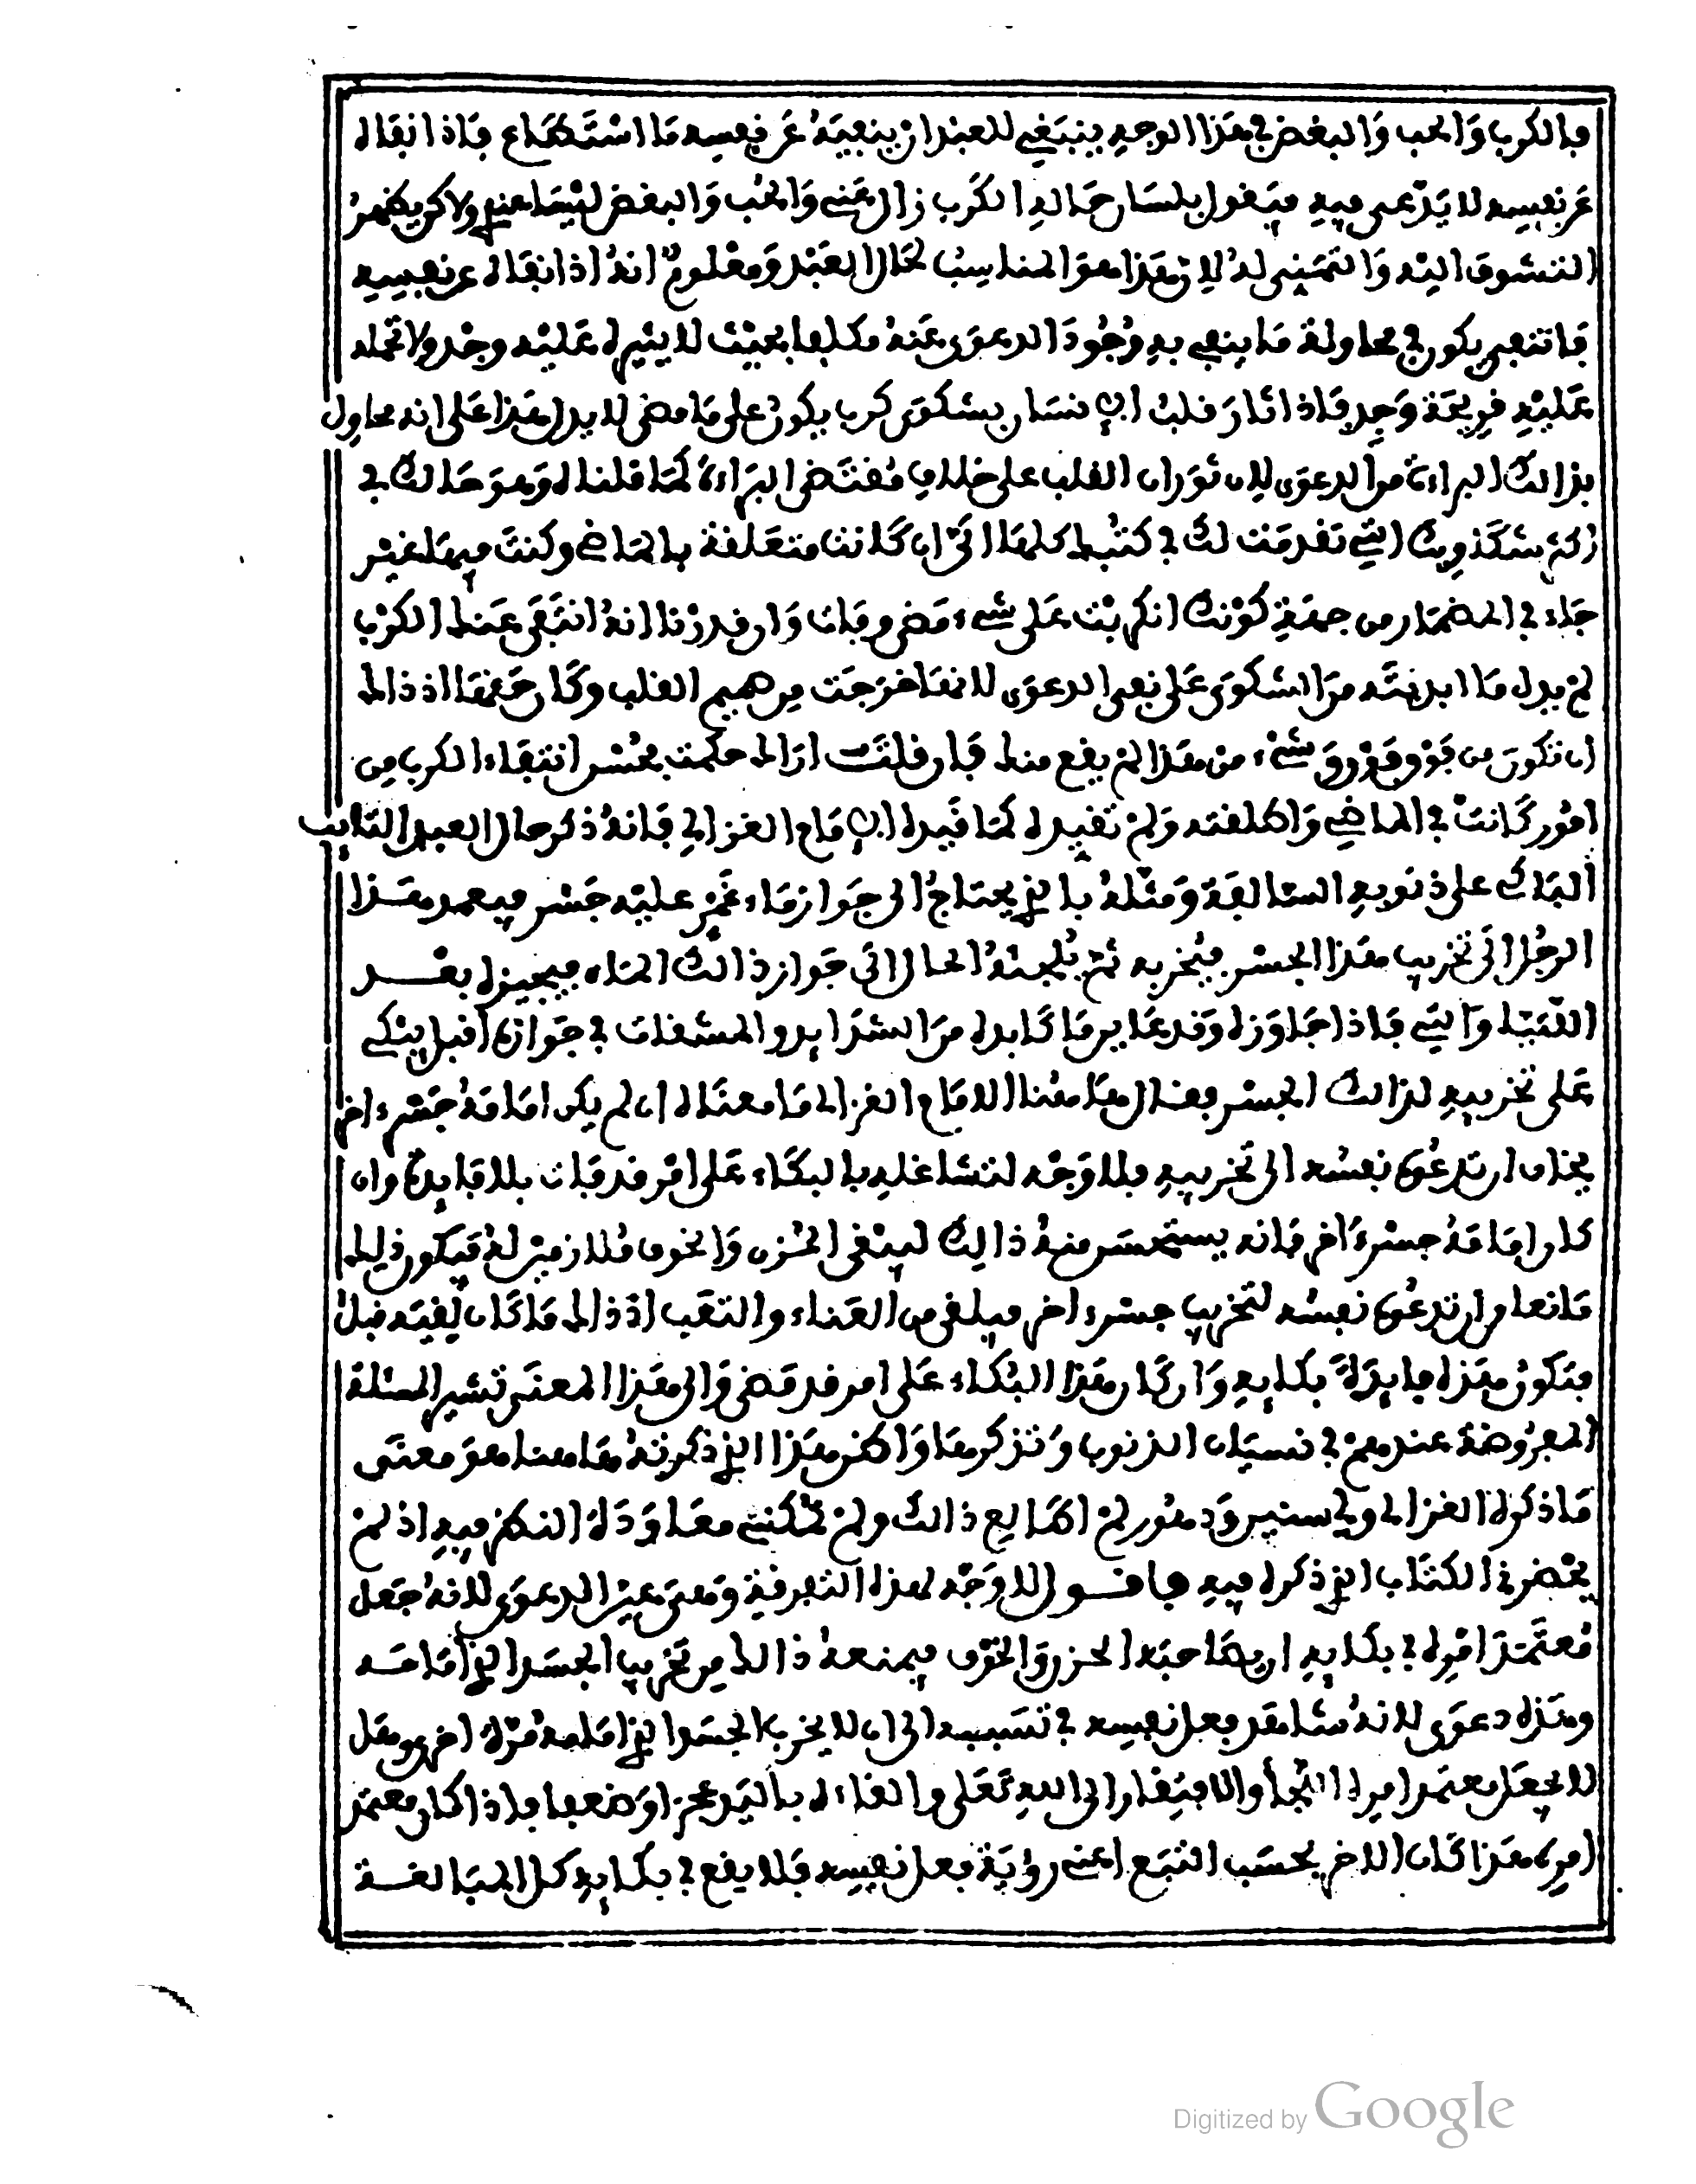 فالكرب والحب والبغض في هذا الوجه ينبغي للعبد ان ينفيه عن نفسه ما استطاع فاذا نفاه
عن نفسه لا يدّعي فيه فيقول بلسان حاله الكرب زال عني والحب والبغض ليسا عندي ولاكن يظهر
التشوق اليه والتمني له لان هذا هو المناسب لحال العبد ومعلوم انه اذا نفاه عن نفسه
فانتفى يكون في محاولة ما ينفي به وجود الدعوى عنه مكلفا بحيث لا يثيره عليه وجد ولا تحمله
عليه قريحة وجد فاذا ثار قلب الانسان بشكوى كرب يكون على ما مضى لا يدل هذا على انه محاول
بذالك البراءة من الدعوى لان ثوران القلب على خلاف مقتضى البراءة كما قلناه وهو حالك في
شكويك التي تقدمت لك في كتبك كلها الى ان كانت متعلقة بالماضي وكنت فيها غير
جاء في المضمار من جهة كونك انكربت على شيء مضى وفات وان قدرنا انه انتفى عنك الكرب
لم يدل ما ابديته من الشكوى على نفي الدعوى لانها خرجت من صميم القلب وكان حقها اذ ذاك
ان تكون من فوق فوق شيء من هذا لم يقع منك فان قلت اراك حكمت بحسن انتفاء الكرب من
امور كانت في الماضي واطلقته ولم تقيده كما قيده الامام الغزالي فانه ذكر حال العبد التايب
الباكي على ذنوبه السالفة ومثله بالذي يحتاج الى جواز ماء غمر عليه جسر فيعمد هذا
الرجل الى تخريب هذا الجسر فيخربه ثم يلجئه الحال الى جواز ذالك الماء فيجيزه بعد
اللتيا والتي فاذا جاوزه وقد عاين ما كابده من الشدايد والمشقات في جوازه اقبل يبكي
على تخريبه لذالك الجسر وقال هاهنا الامام الغزالي ما معناه ان لم يكن امامه جسر ءاخر
يخاف ان تدعوه نفسه الى تخريبه فلا وجه لتشاغله بالبكاء على امر قد فات بلا فايدة وان
كان امامه جسر ءاخر فانه يستحسن منه ذالك ليبقى الحزن والخوف ملازمين له فيكون ذلك
مانعا من ان تدعوه نفسه لتخريب جسر ءاخر فيلقى من العناء والتعب اذ ذاك ما كان لقيه قبل
فتكون هذه فايدة بكايه وان كان هذا البكاء على امر قد مضى والى هذا المعنى تشير المسئلة
المعروضة عندهم في نسيان الذنوب وتذكرها واظن هذا الذي ذكرته هاهنا هو معنى
ما ذكره الغزالي ولي سنين ودهور لم اطالع ذالك ولم تمكني معاودة النظر فيه اذ لم
يحضرني الكتاب الذي ذكره فيه فاقول لا وجه لهذه التفرقة وهي عين الدعوى لانه جعل
معتمد امره في بكايه ان يصاحبه الحزن والخوف فيمنعه ذالك من تخريب الجسر الذي امامه
وهذه دعوى لانه شاهد فعل نفسه في تسببه الى ان لا يخرب الجسر الذي امامه مرة اخرى وهل
لا يجعل معتمد امره التجأ والافتقار الى الله تعلى والقاءه باليد عجزا وضعفا فاذا كان معتمد
امره هذا كان الاخر بحسب التبع اعني رؤية فعل نفسه فلا يقع في بكايه كل المبالغة